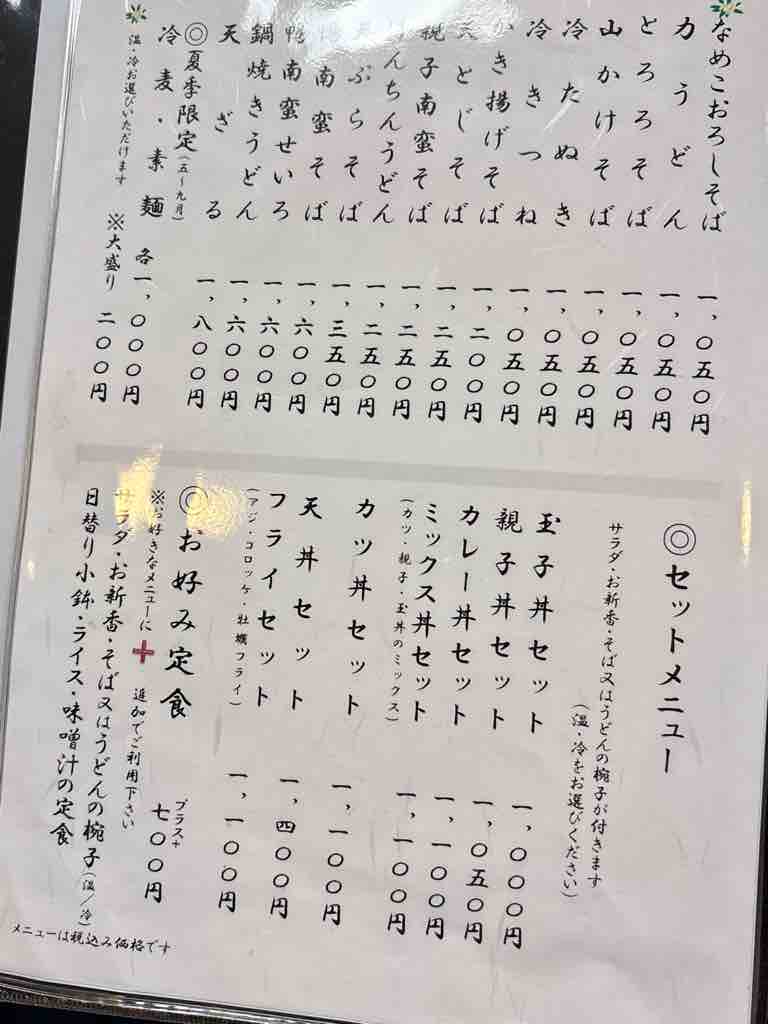 なめこおろしそば 一,〇五〇円
力うどん 一,〇五〇円
とろろそば 一,〇五〇円
山かけそば 一,〇五〇円
冷たぬき 一,〇五〇円
冷きつね 一,〇五〇円
かき揚げそば 一,二〇〇円
天とじそば 一,二五〇円
親子南蛮そば 一,二五〇円
けんちんうどん 一,二五〇円
天ぷらそば 一,三五〇円
鴨南蛮そば 一,六〇〇円
鴨南蛮せいろ 一,六〇〇円
鍋焼きうどん 一,六〇〇円
天ざる 一,八〇〇円
◎夏季限定(五~九月)
冷麦・素麺 各一,〇〇〇円
温・冷お選びいただけます
※大盛り 二〇〇円
◎セットメニュー
サラダ・お新香・そば又はうどんの椀子が付きます
(温・冷をお選びください)
玉子丼セット 一,〇〇〇円
親子丼セット 一,〇五〇円
カレー丼セット 一,一〇〇円
ミックス丼セット 一,一〇〇円
(カツ・親子・玉丼のミックス)
カツ丼セット 一,一〇〇円
天丼セット 一,四〇〇円
フライセット 一,一〇〇円
(アジ・コロッケ・牡蠣フライ)
◎お好み定食 プラス+七〇〇円
※お好きなメニューに+追加でご利用下さい
サラダ・お新香・そば又はうどんの椀子(温/冷)
日替り小鉢・ライス・味噌汁の定食
メニューは税込み価格です